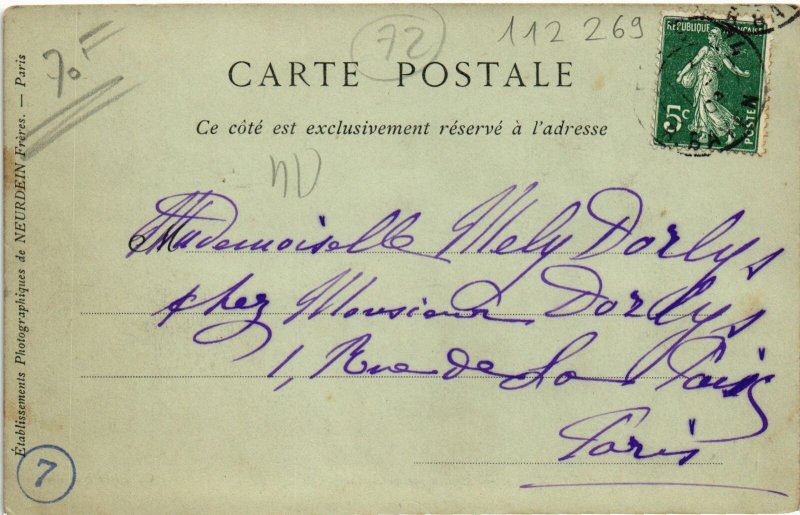 112 269
72
70
RÉPUBLIQUE FRANÇAISE
5c
POSTES
CARTE POSTALE
Ce côté est exclusivement réservé à l'adresse
ND
Mademoiselle Mely Dorlys
chez Monsieur Dorlys
1, Rue de La Paix
Paris
Établissements Photographiques de NEURDEIN Frères. — Paris
7